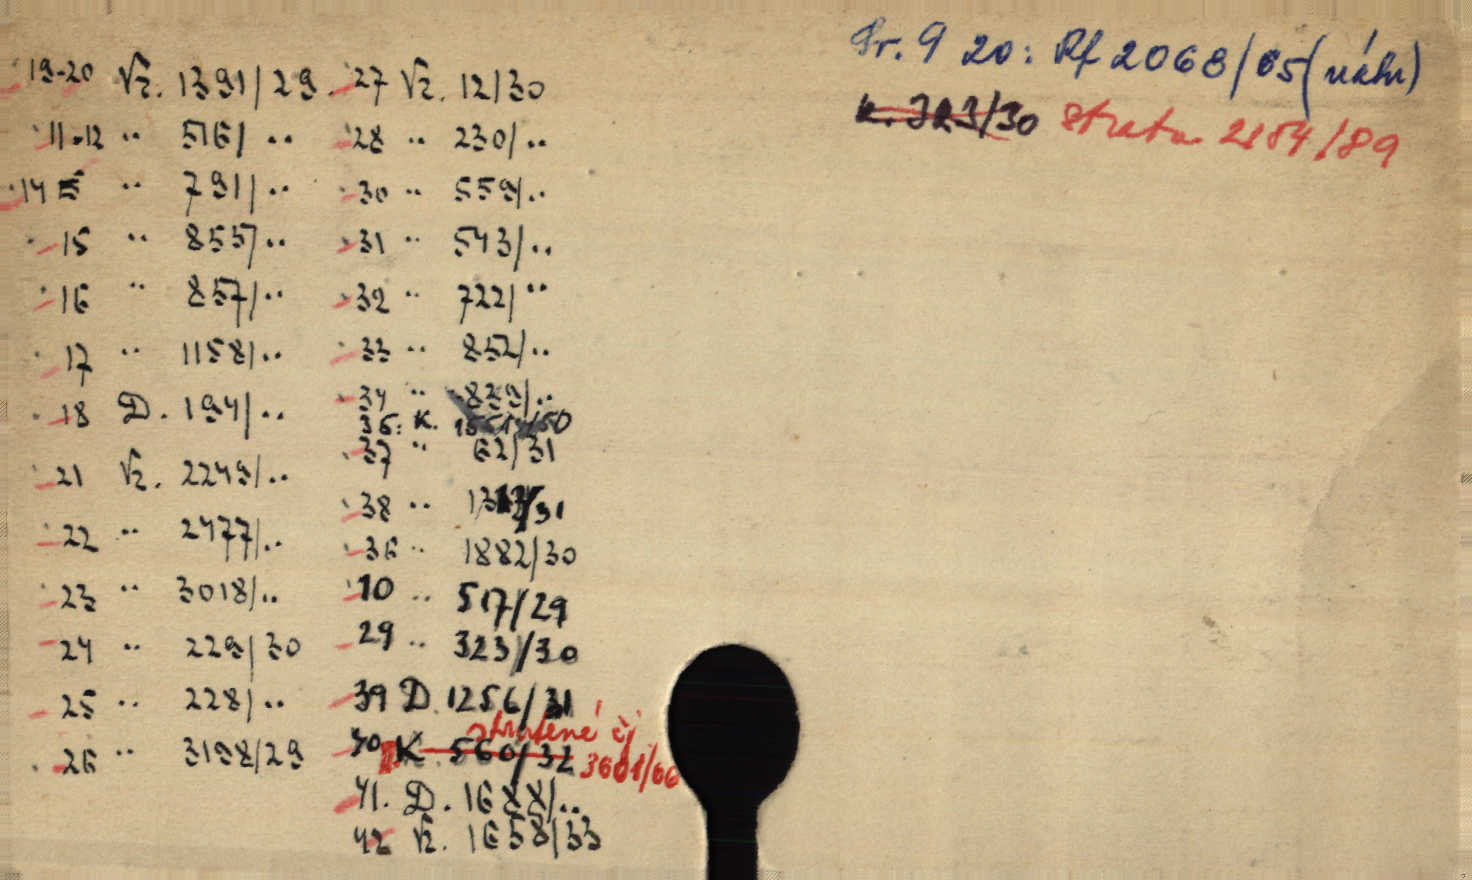 Pr. 9 20: Rf 2068/65 (náhr)
k. 323/30 strata 2184/89
19-20 Vz. 1391/29.
11-12 ·· 516/ ··
14 ·· 791/ ··
15 ·· 855/ ··
16 ·· 857/ ··
17 ·· 1158/ ··
18 D. 194/ ··
21 Vz. 2249/ ··
22 ·· 2477/ ··
23 ·· 3018/ ··
24 ·· 229/30
25 ·· 228/ ··
26 ·· 3198/29
27 Vz. 12/30
28 ·· 230/ ··
30 ·· 559/ ··
31 ·· 543/ ··
32 ·· 722/ ··
33 ·· 852/ ··
34 ·· 829/ ··
36: K.
37 ·· 62/31
38 ··
36 ·· 1882/30
10 ·· 517/29
29 ·· 323/30
39 D. 1256/31
ztratené čj
40 K 560/32 3601/66
41. D. 1688/ ··
42 Vz. 1658/33